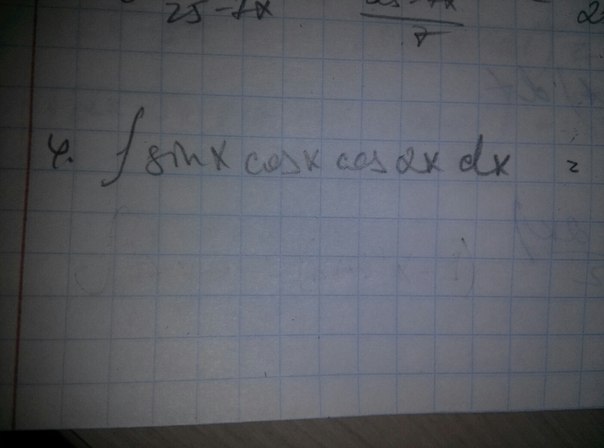 25-7x
7
4. ∫ sin x cos x cos 2x dx =